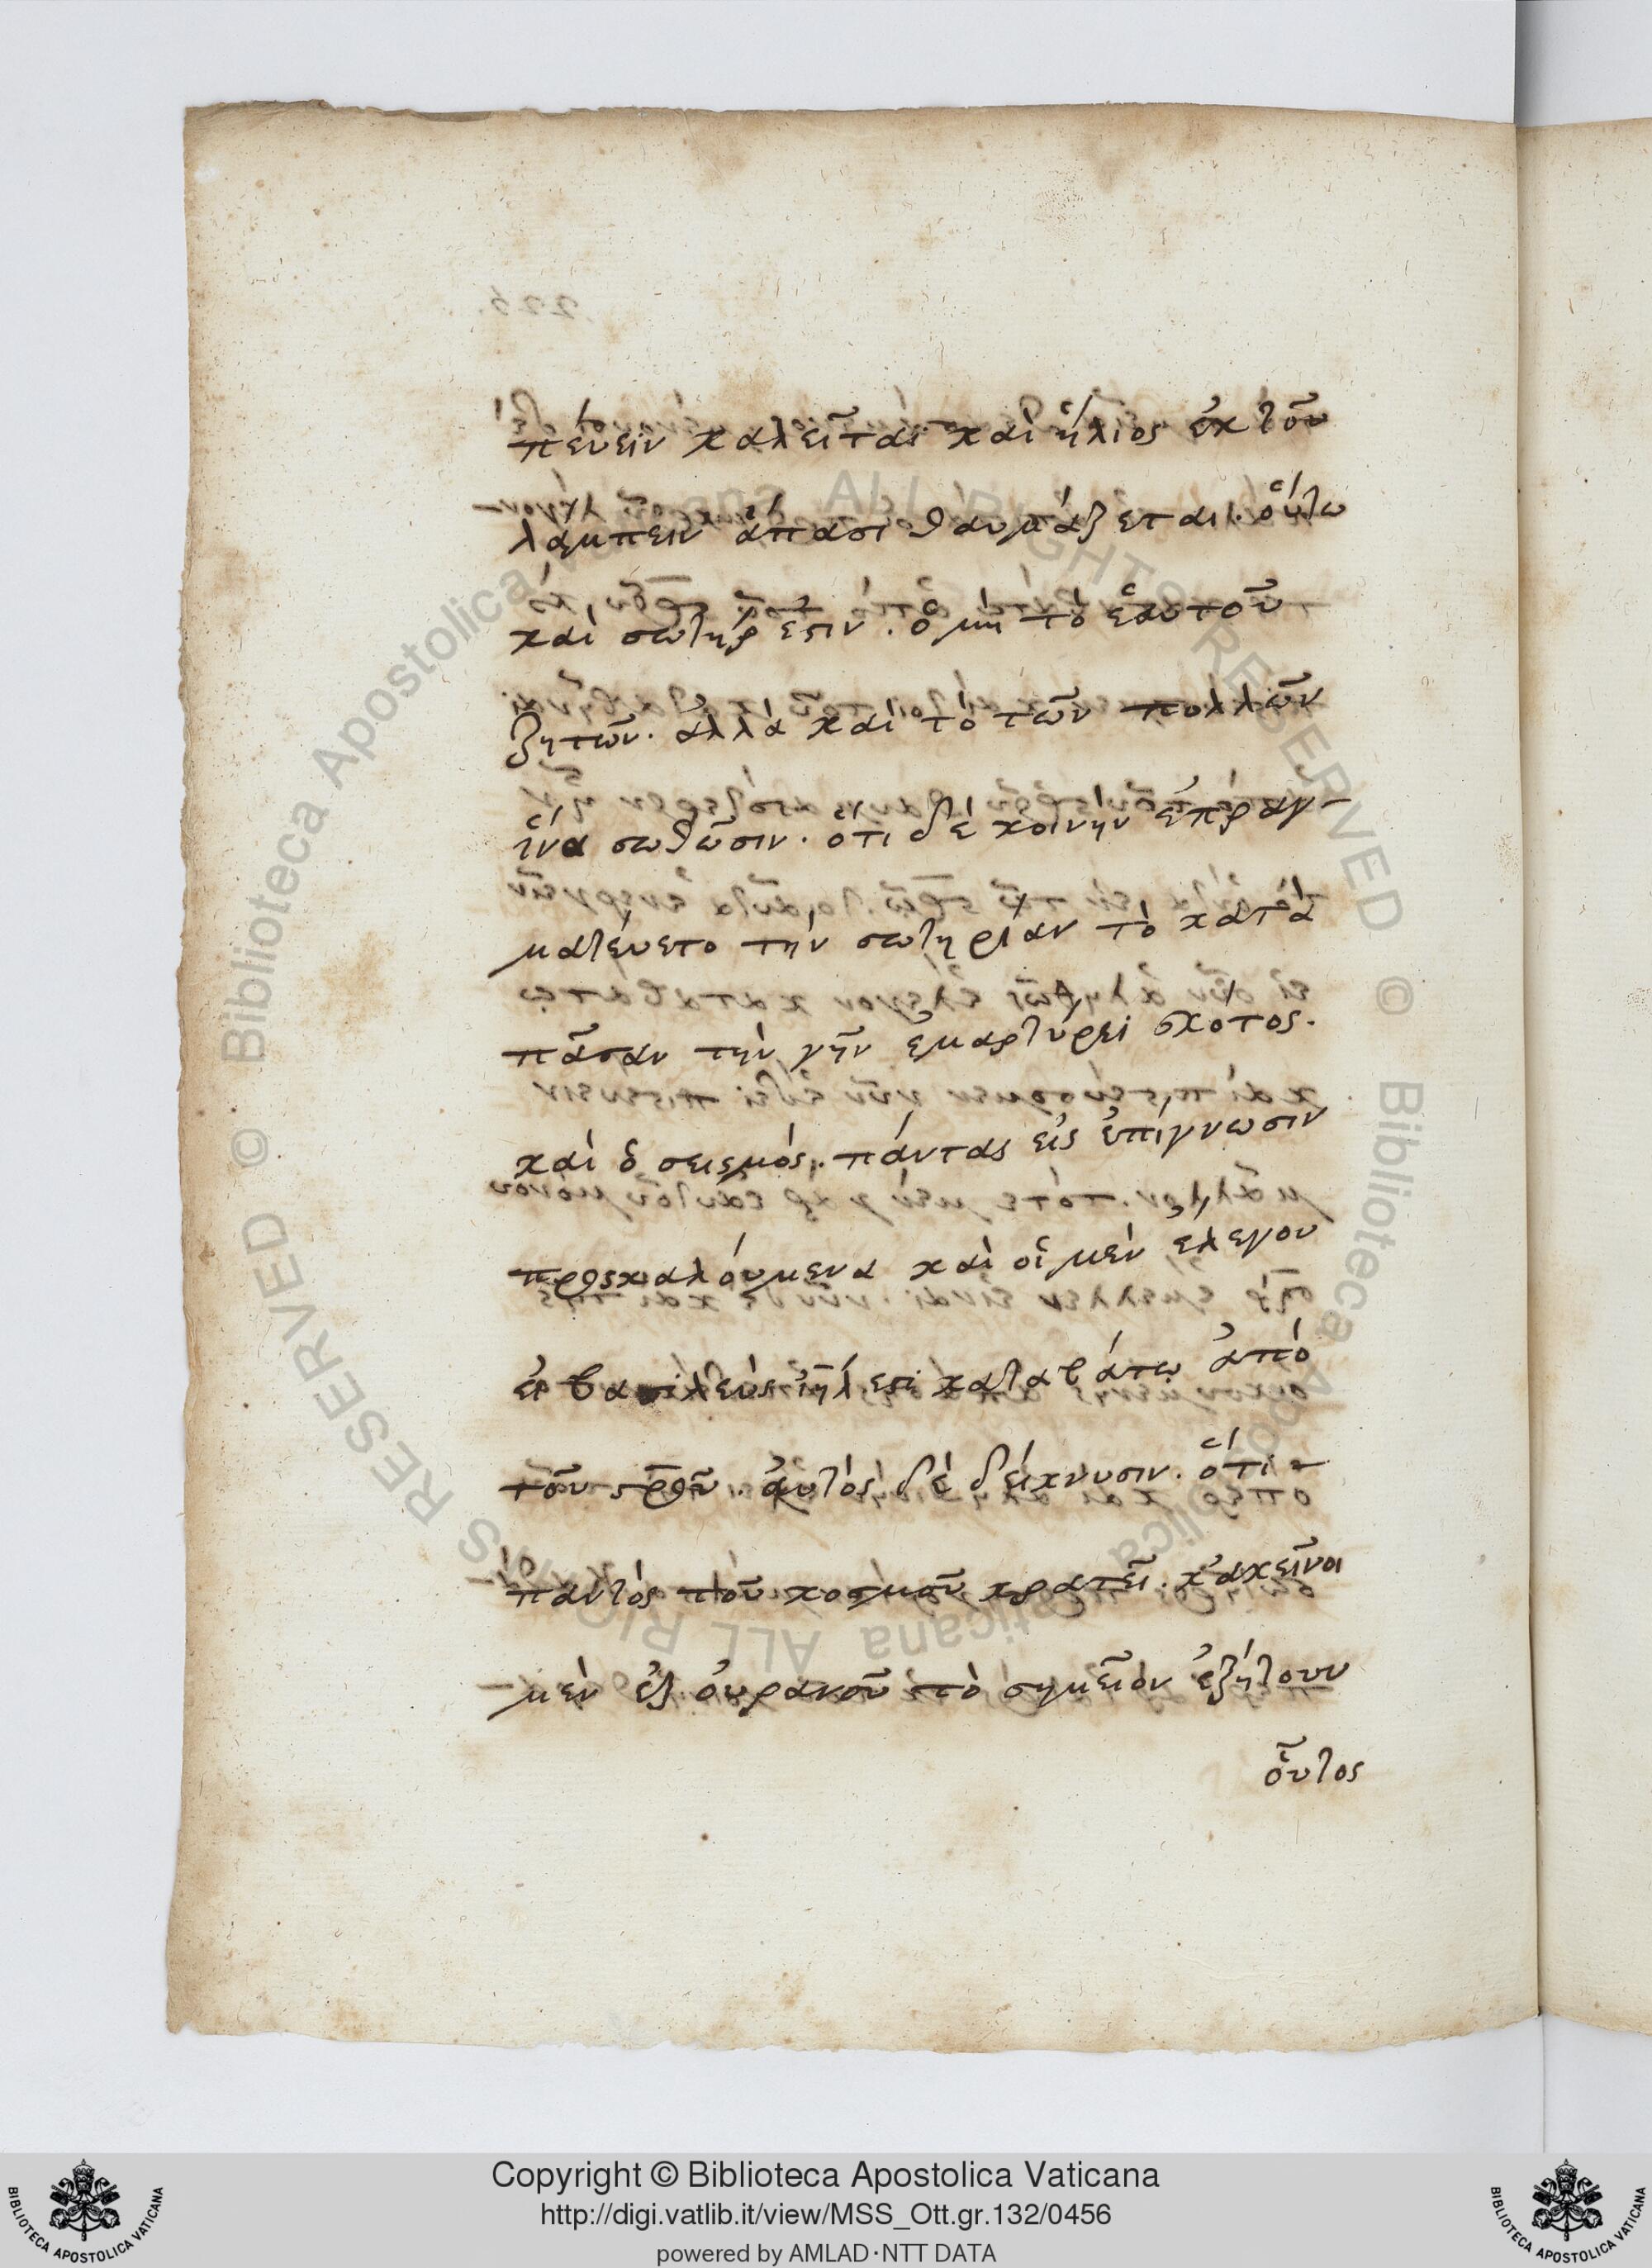 πεύειν καλεῖται καὶ ἥλιος ἐκ τοῦ
λάμπειν ἅπασι θαυμάζεται. οὕτω
καὶ σωτήρ ἐστιν. ὁ μὴ τὸ ἑαυτοῦ
ζητῶν. ἀλλὰ καὶ τὸ τῶν πολλῶν
ἵνα σωθῶσιν. ὅτι δὲ κοινὴν ἐπραγ-
ματεύετο τὴν σωτηρίαν τὸ κατὰ
πᾶσαν τὴν γῆν ἐμαρτύρει σκότος.
καὶ ὁ σεισμὸς. πάντας εἰς ἐπίγνωσιν
προσκαλούμενα καὶ οἱ μὲν ἔλεγον
εἰ βασιλεὺς ἰηλ ἐστι καταβάτω ἀπὸ
τοῦ σρου. αὐτὸς δὲ δείκνυσιν. ὅτι
παντὸς τοῦ κόσμου κρατεῖ. κἀκεῖνοι
μὲν ἐξ οὐρανοῦ τὸ σημεῖον ἐζήτουν
οὗτος
Copyright © Biblioteca Apostolica Vaticana
http://digi.vatlib.it/view/MSS_Ott.gr.132/0456
powered by AMLAD·NTT DATA